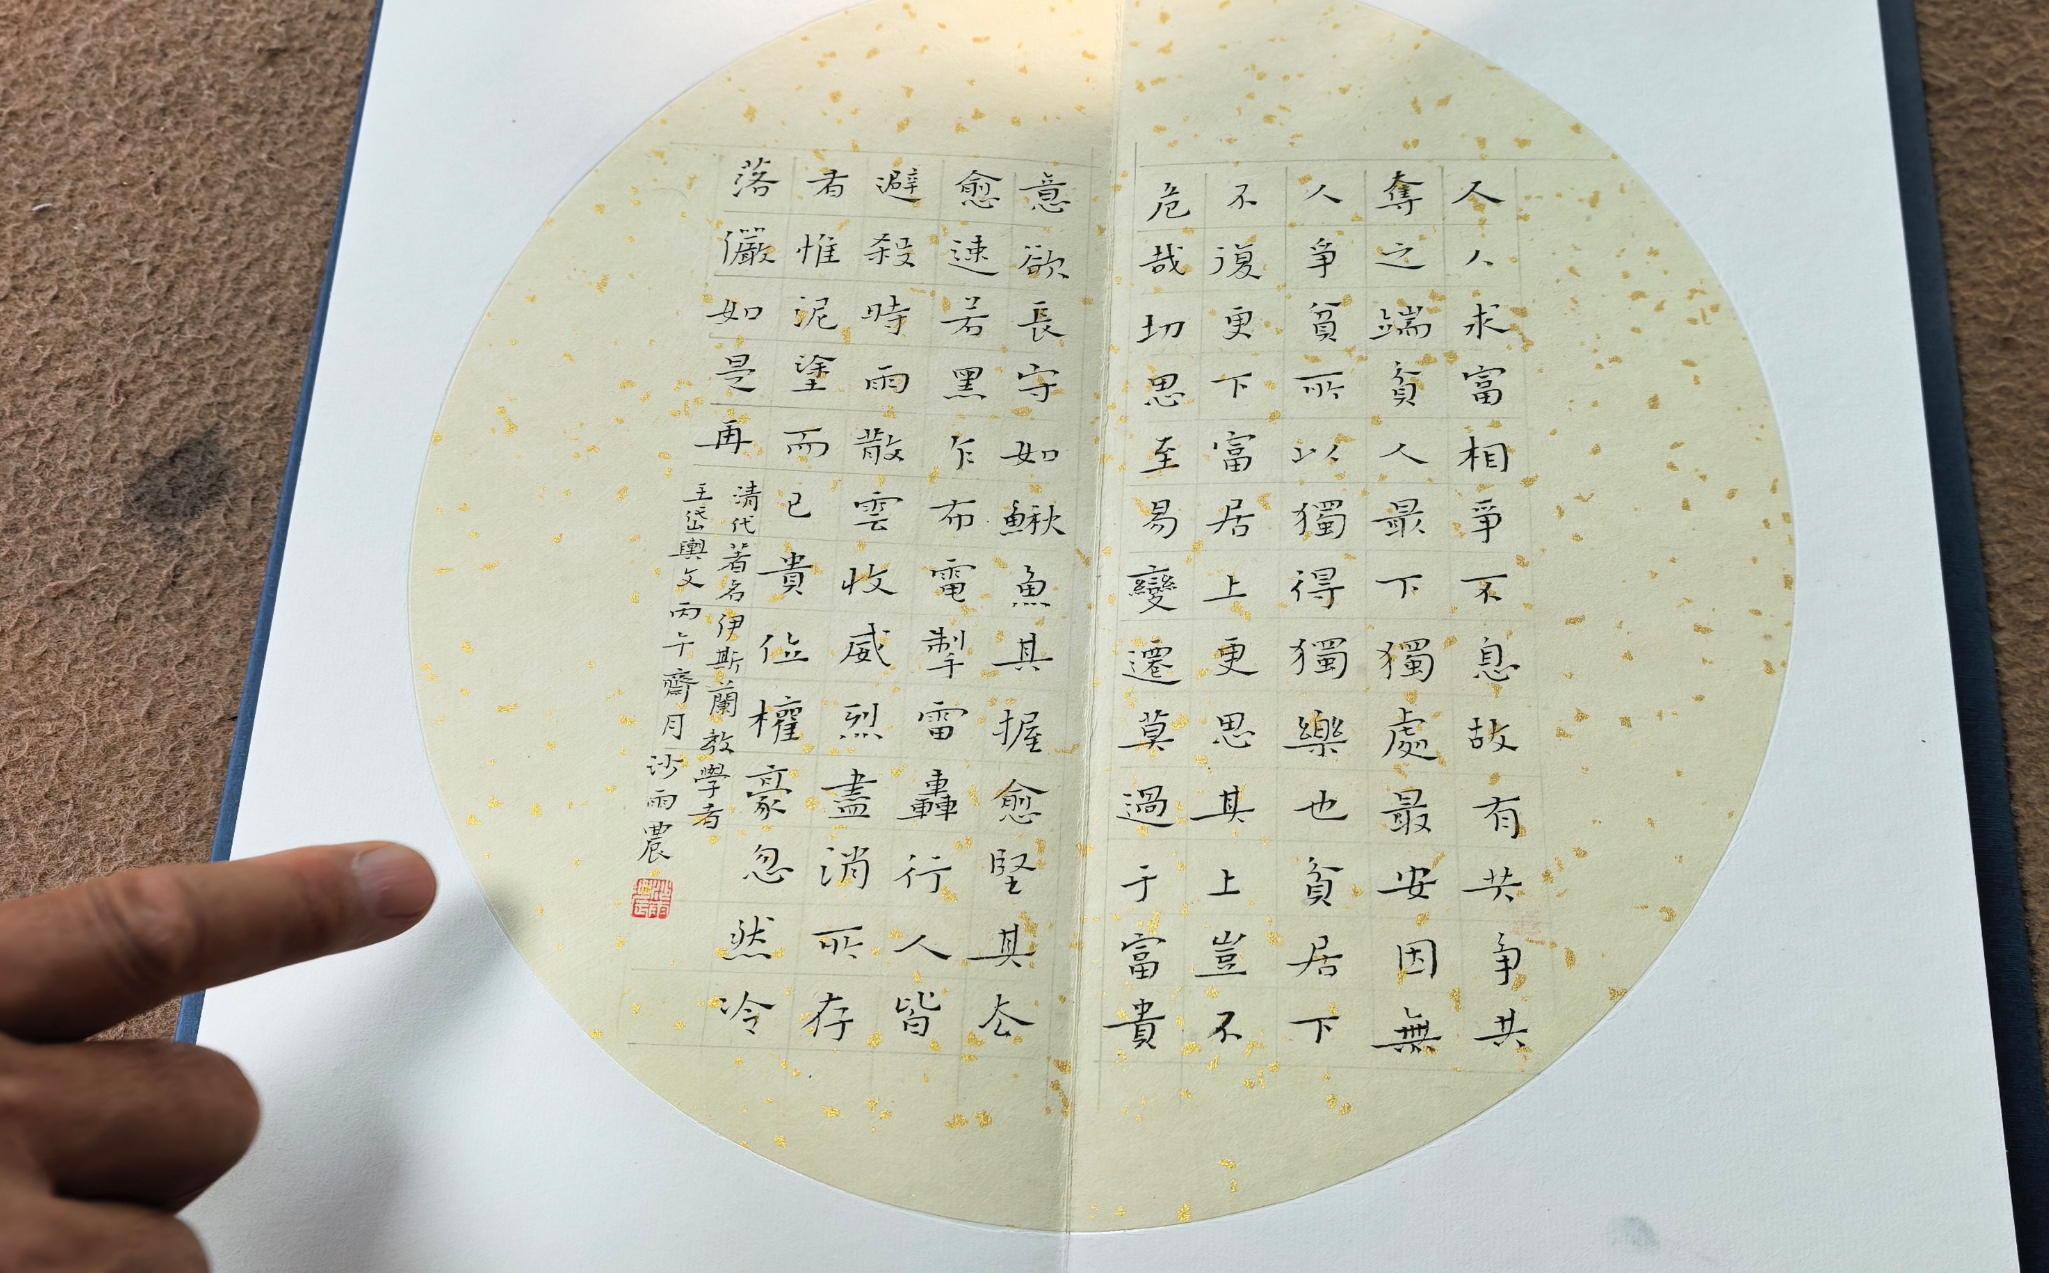 人人求富相爭不息故有共争共
奪之端貧人最下獨處最安因無
人爭貧所以獨得獨樂也貧居下
不復更下富居上更思其上豈不
危哉切思至易變遷莫過于富貴
意欲長守如鰍魚其握愈堅其去
愈速若黑乍布電掣雷轟行人皆
避殺時雨散雲收威烈盡消所存
者惟泥塗而已貴位權豪忽然冷
落儼如是再
清代著名伊斯蘭教學者
王岱輿文丙午齋月沙雨農